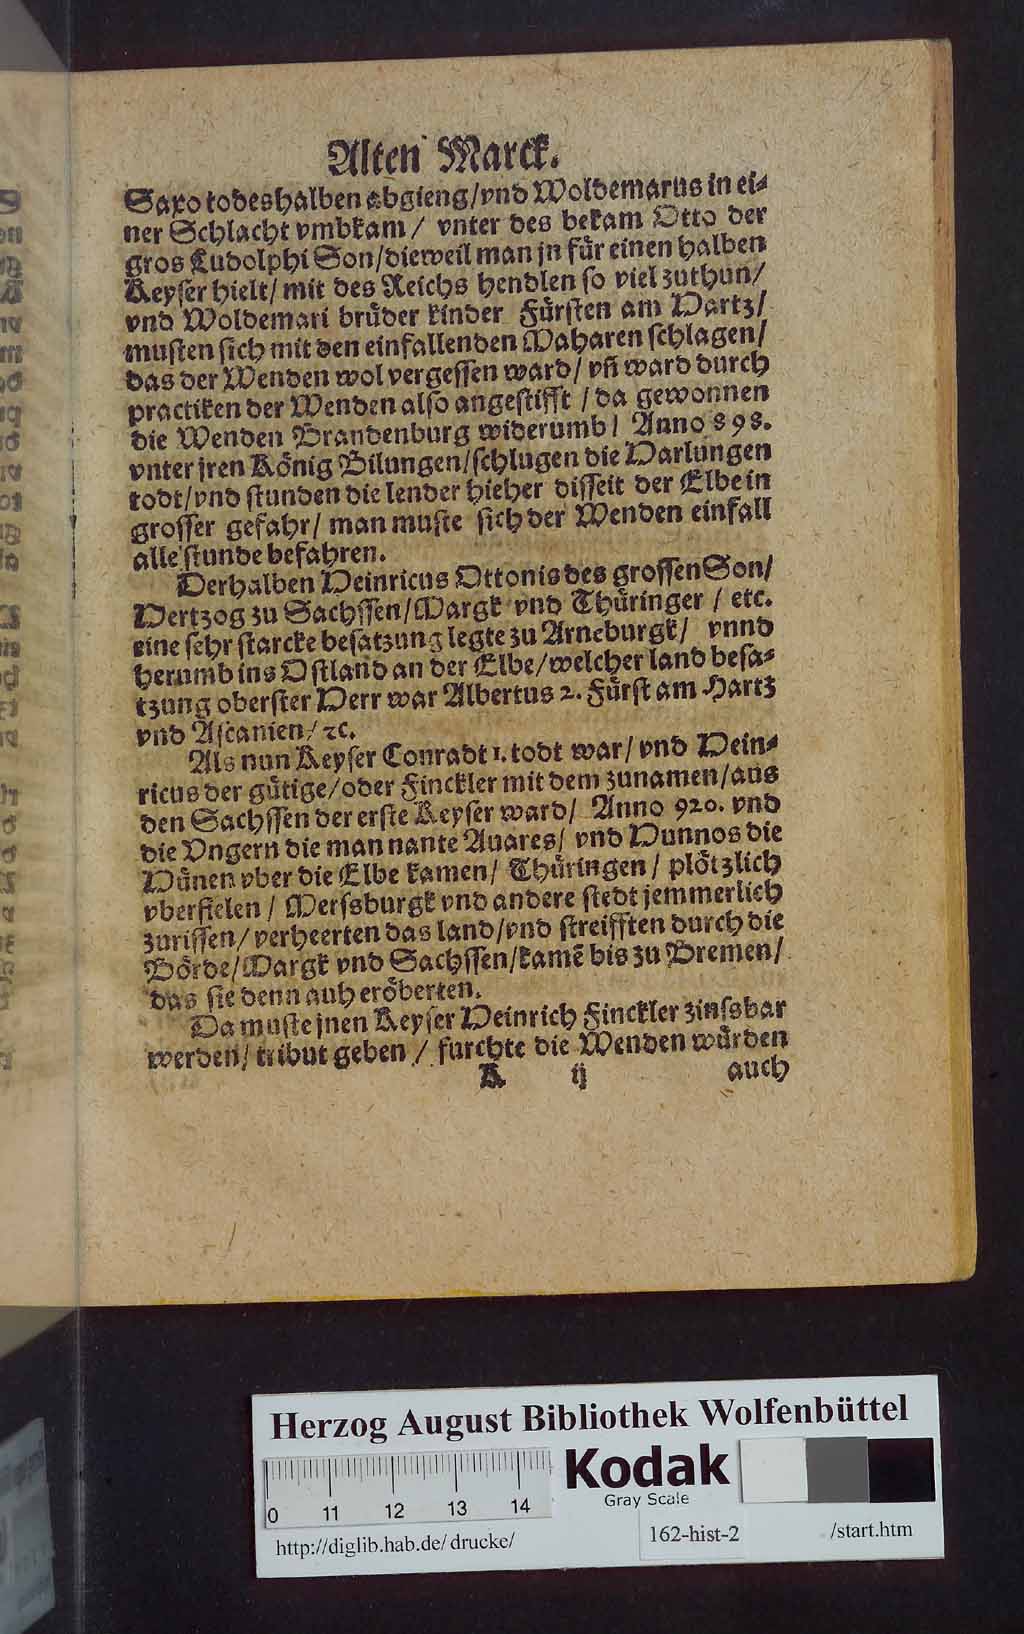 Alten Marck.
Saxo todeshalben abgieng/vnd Woldemarus in ei-
ner Schlacht vmbkam/ vnter des bekam Otto der
gros Ludolphi Son/dieweil man jn für einen halben
Keyser hielt/ mit des Reichs hendlen so viel zuthun/
vnd Woldemari brüder kinder Fürsten am Hartz/
musten sich mit den einfallenden Maharen schlagen/
das der Wenden wol vergessen ward/ vñ ward durch
practiken der Wenden also angestifft / da gewonnen
die Wenden Brandenburg widerumb/ Anno 898.
vnter jren König Bilungen/schlugen die Harlungen
todt/vnd stunden die lender hieher disseit der Elbe in
grosser gefahr/ man muste sich der Wenden einfall
alle stunde befahren.
Derhalben Heinricus Ottonis des grossen Son/
Hertzog zu Sachssen/Margk vnd Thüringer / etc.
eine sehr starcke besatzung legte zu Arneburgk/ vnnd
herumb ins Ostland an der Elbe/welcher land besa-
tzung oberster Herr war Albertus 2. Fürst am Hartz
vnd Ascanien/ ꝛc.
Als nun Keyser Conradt 1. todt war/ vnd Hein-
ricus der gütige/oder Finckler mit dem zunamen/aus
den Sachssen der erste Keyser ward/ Anno 920. vnd
die Vngern die man nante Auares/ vnd Hunnos die
Hünen vber die Elbe kamen/ Thüringen / plötzlich
vberfielen / Mersburgk vnd andere stedt jemmerlich
zurissen/ verheerten das land/vnd streifften durch die
Börde/Margk vnd Sachssen/kamē bis zu Bremen/
das sie denn auh eröberten.
Da muste jnen Keyser Heinrich Finckler zinsbar
werden/ tribut geben / furchte die Wenden würden
K ij auch
Herzog August Bibliothek Wolfenbüttel
Kodak
Gray Scale
0 11 12 13 14
http://diglib.hab.de/drucke/ 162-hist-2 /start.htm